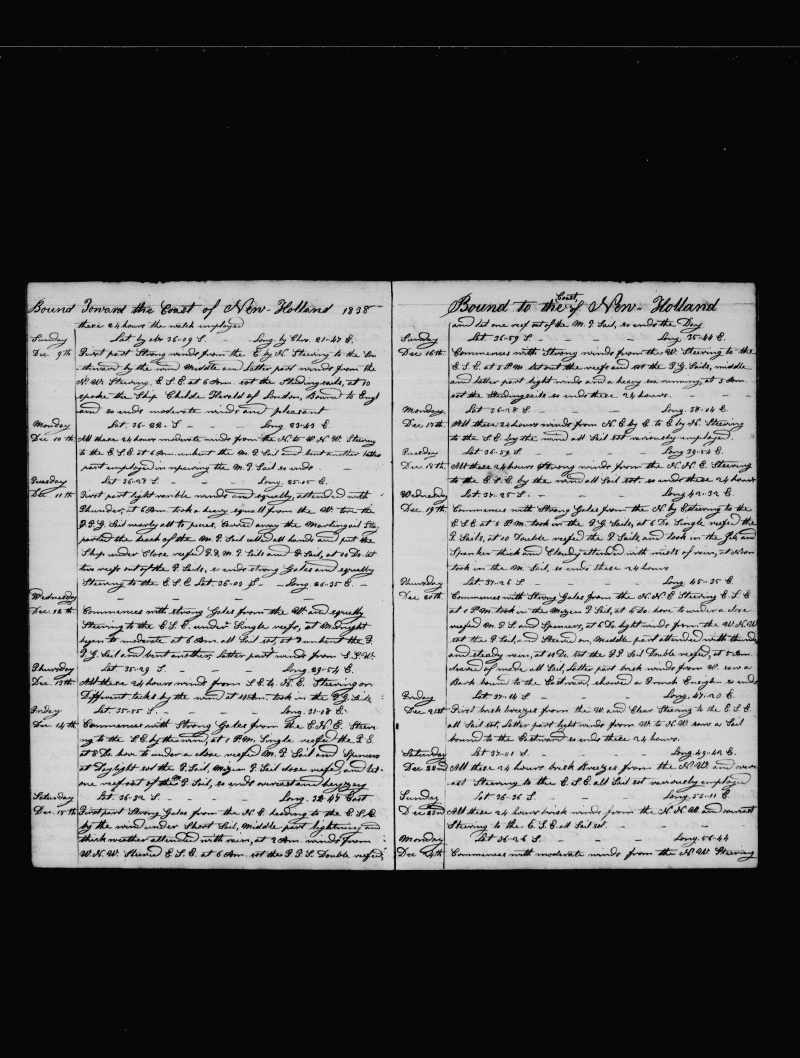 Bound Toward the Coast of New-Holland 1838
these 24 hours the watch employed
Sunday Lat by obs 36-09 S. - - Long by Chro. 21-47 E.
Dec 9th First part Strong winds from the E by N Steering to the Sou
thward by the wind Middle and latter part winds from the
N.W. Steering E.S.E at 6 Am. set the Studingsails, at 10
spoke the Ship Childe Harold of London, Bound to Engl
and so ends moderate winds and pleasant
Monday Lat. 36-22. S - - Long 23-43 E.
Dec 10th All these 24 hours moderate winds from the N. to W.N.W. Steering
to the E.S.E. at 6 Am. unbent the M.T. Sail and bent another latter
part employed in repairing the M.T. Sail so ends -
Tuesday Lat. 36-27 S. - - Long. 25-05 E.
Dec 11th First part light varible winds and squally, attended with
Thunder, at 6 Am. took a heavy squall from the W. tore the
F.T.G. Sail nearly all to pieces, Carried away the Martingail Stay
parted the head of the M.T. Sail called all hands and put the
Ship under Close reefed F.&M.T. Sails and F. Sail, at 10 Do. let
two reefs out of the T. Sails, so ends strong Gales and squally
Steering to the E.S.E Lat. 36-03 S - Long. 26-35 E. -
Wednesday - - - - -
Dec. 12th Commences with strong Gales from the W. and squally
Steering to the E.S.E. under Single reefs, at Midnight
began to moderate at 6 Am. all Sail set, at 7 unbent the F.
T.G. Sail and bent another, latter part winds from S.S.W.
Thursday Lat 35-29 S. - - Long. 29-54 E.
Dec. 13th All these 24 hours winds from S.E. to N.E. Steering on
Different tacks by the wind at 11 Am. took in the T.G. Sails
Friday Lat. 35-55 S. - - - Long. 31-08 E.
Dec. 14th Commences with Strong Gales from the E.N.E. Steer-
ing to the S.E by the wind, at 1 P.M. Single reefed the T.S.
at 8 Do. hove to under a close reefed M.T. Sail and Spencers
at Daylight set the F. Sail, Mizen T. Sail close reefed, and let
one reef out of the M T Sail, so ends overcast and
Saturday Lat. 36-32 S. - - Long. 32-47 East
Dec. 15th First part Strong Gales from the N.E. heading to the E.S.E.
by the wind under Short Sail, Middle part lightning and
thick weather attended with rain, at 2 Am. winds from
W.N.W. Steered E.S.E. at 6 Am. set the F.T.S. Double reefed,
Bound to the Coast, of New-Holland
and let one reef out of the M.T. Sail, so ends the Day
Sunday Lat 36-59 S. - - - Long. 35-44 E.
Dec 16th Commences with Strong winds from the W. Steering to the
E.S.E. at 5 P.M. let out the reefs and set the T.G. Sails, middle
and latter part light winds and a heavy sea running, at 5 Am.
set the Studingsails so ends these 24 hours. -
Monday. Lat 36-28 S. - - Long. 38-04 E.
Dec 17th All these 24 hours winds from N.E. by E. to E by N. Steering
to the S.E. by the wind all Sail set variously employed.
Tuesday Lat 36-59 S. - - Long 39-54 E.
Dec 18th All these 24 hours Strong winds from the N.N.E. Steering
to the E.S.E. by the wind all Sail set. so ends these 24 hours
Wednesday Lat 37-25 S. - - Long 42-32 E.
Dec 19th Commences with Strong Gales from the N. by E Steering to the
E.S.E. at 5 P.M. took in the T.G. Sails, at 6 Do. Single reefed the
T. Sails, at 10 Double reefed the T. Sails, and took in the Jib and
Spanker thick and Cloudy attended with mists of rain, at Noon
took in the M. Sail, so ends these 24 hours
Thursday Lat. 37-26 S. - - Long. 45-35 E.
Dec 20th Commences with Strong Gales from the N.N.E Steering E.S.E
at 1 P.M. took in the Mizen T. Sail, at 4 Do. hove to under a close
reefed M.T.S. and Spencers, at 6 Do. light winds from the W.N.W.
set the F. Sail, and Steered on, Middle part attended with thunder
and steady rain, at 10 Do. set the F.T. Sail Double reefed, at 5 Am.
cleared of made all Sail, latter part brisk winds from W. saw a
Bark bound to the Eastward, showed a French Ensign so ends
Friday Lat. 37-14 S. - - Long. 47-20 E.
Dec 21st First brisk breezes from the W and Clear Steering to the E.S.E.
all Sail set, latter part light winds from W. to N.W. saw a Sail
bound to the Eastward so ends these 24 hours.
Saturday Lat 37-01 S. - - - Long. 49-42 E.
Dec 22nd All these 24 hours brisk Breezes from the N.W. and over
cast Steering to the E.S.E all Sail set variously employed
Sunday Lat 36-36 S. - - Long. 53-11 E
Dec 23rd All these 24 hours brisk winds from the N.N.W. and overcast
Steering to the E.S.E. all Sail set. - - - -
Monday Lat 36-26 S. - - - Long. 56-44
Dec 24th Commences with moderate winds from the N.W. Steering